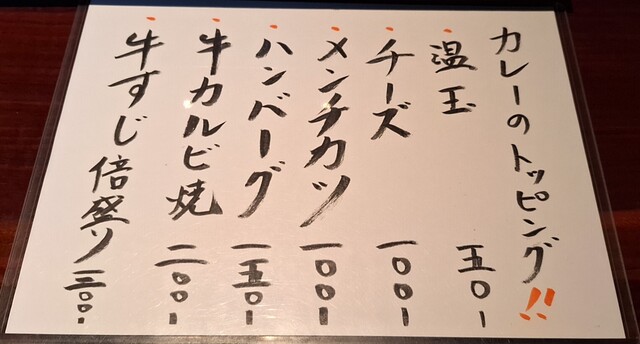 カレーのトッピング!!
・温玉 五〇-
・チーズ 一〇〇-
・メンチカツ 一〇〇-
・ハンバーグ 一五〇-
・牛カルビ焼 二〇〇-
・牛すじ倍盛り 三〇〇-